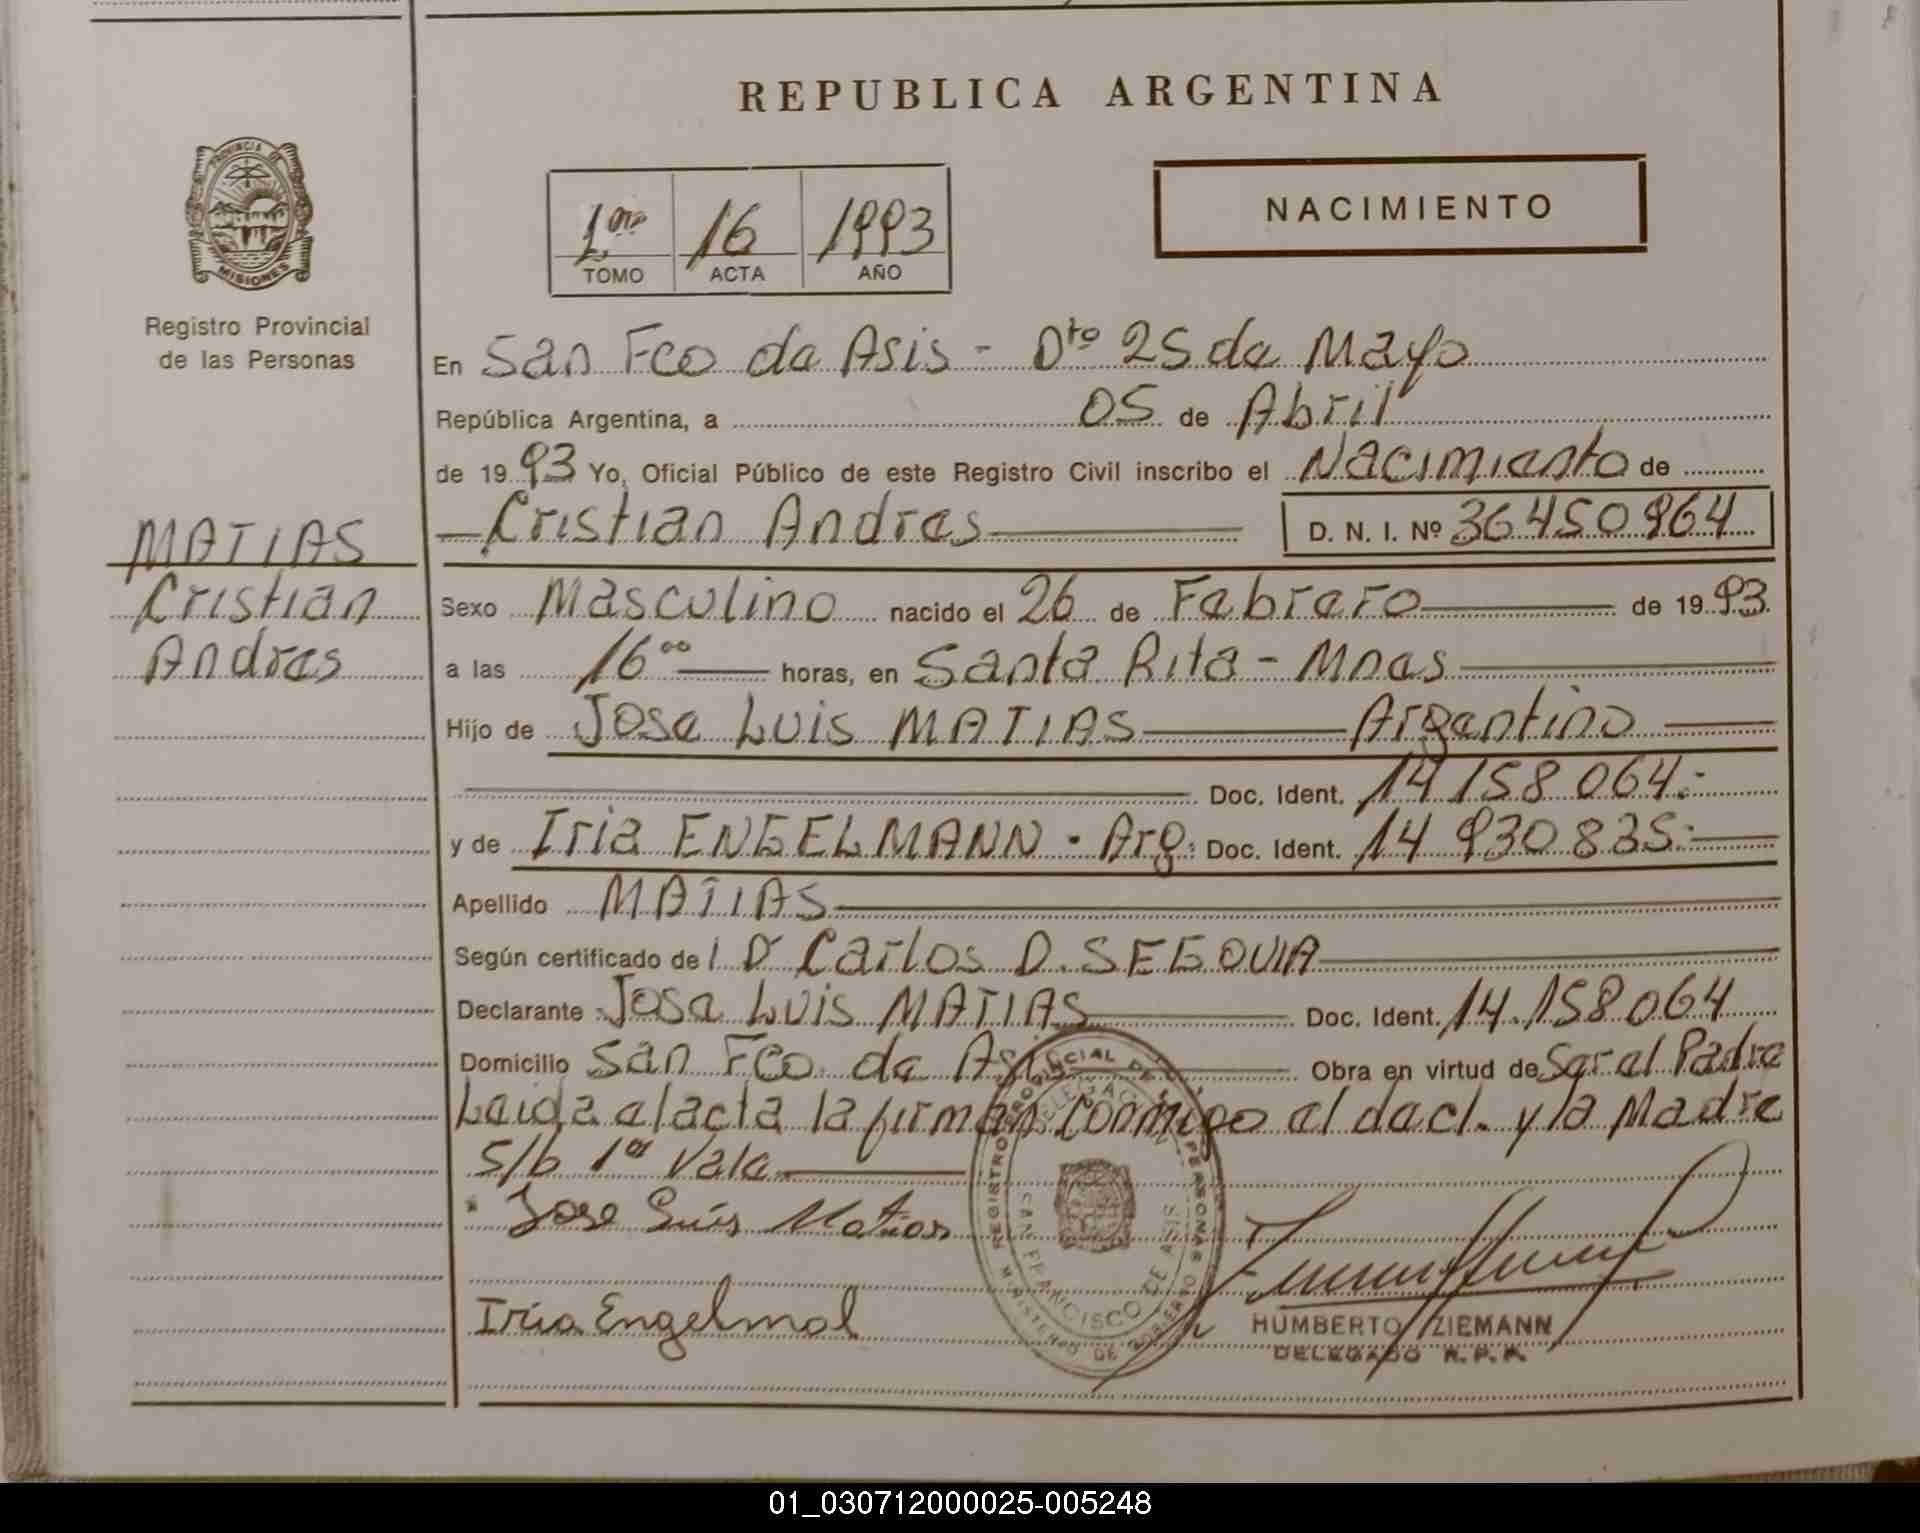 REPUBLICA ARGENTINA
PROVINCIA DE
MISIONES
Registro Provincial
de las Personas
1ro 16 1993
TOMO ACTA AÑO
NACIMIENTO
En San Fco de Asis - Dto 25 de Mayo
República Argentina, a 05 de Abril
de 1993 Yo, Oficial Público de este Registro Civil inscribo el Nacimiento de
Cristian Andres D. N. I. Nº 36450964
MATIAS
Cristian
Andres
Sexo Masculino nacido el 26 de Febrero de 1993
a las 16 00 horas, en Santa Rita - Mnes
Hijo de Jose Luis MATIAS Argentino
Doc. Ident. 14 158 064.-
y de Iria ENGELMANN - Arg. Doc. Ident. 14 930 835.-
Apellido MATIAS
Según certificado del Dr Carlos D. SEGOVIA
Declarante Jose Luis MATIAS Doc. Ident. 14.158 064
Domicilio San Fco de Asis Obra en virtud de Ser el Padre
Leida el acta la firman conmigo el decl. y la Madre
S/b 1ra Vale
Jose Luis Matias
Iria Engelmal
REGISTRO PROVINCIAL DE LAS PERSONAS
DELEGACION
SAN FRANCISCO DE ASIS
MINISTERIO DE GOBIERNO
HUMBERTO ZIEMANN
DELEGADO R. P. P.
01_030712000025-005248